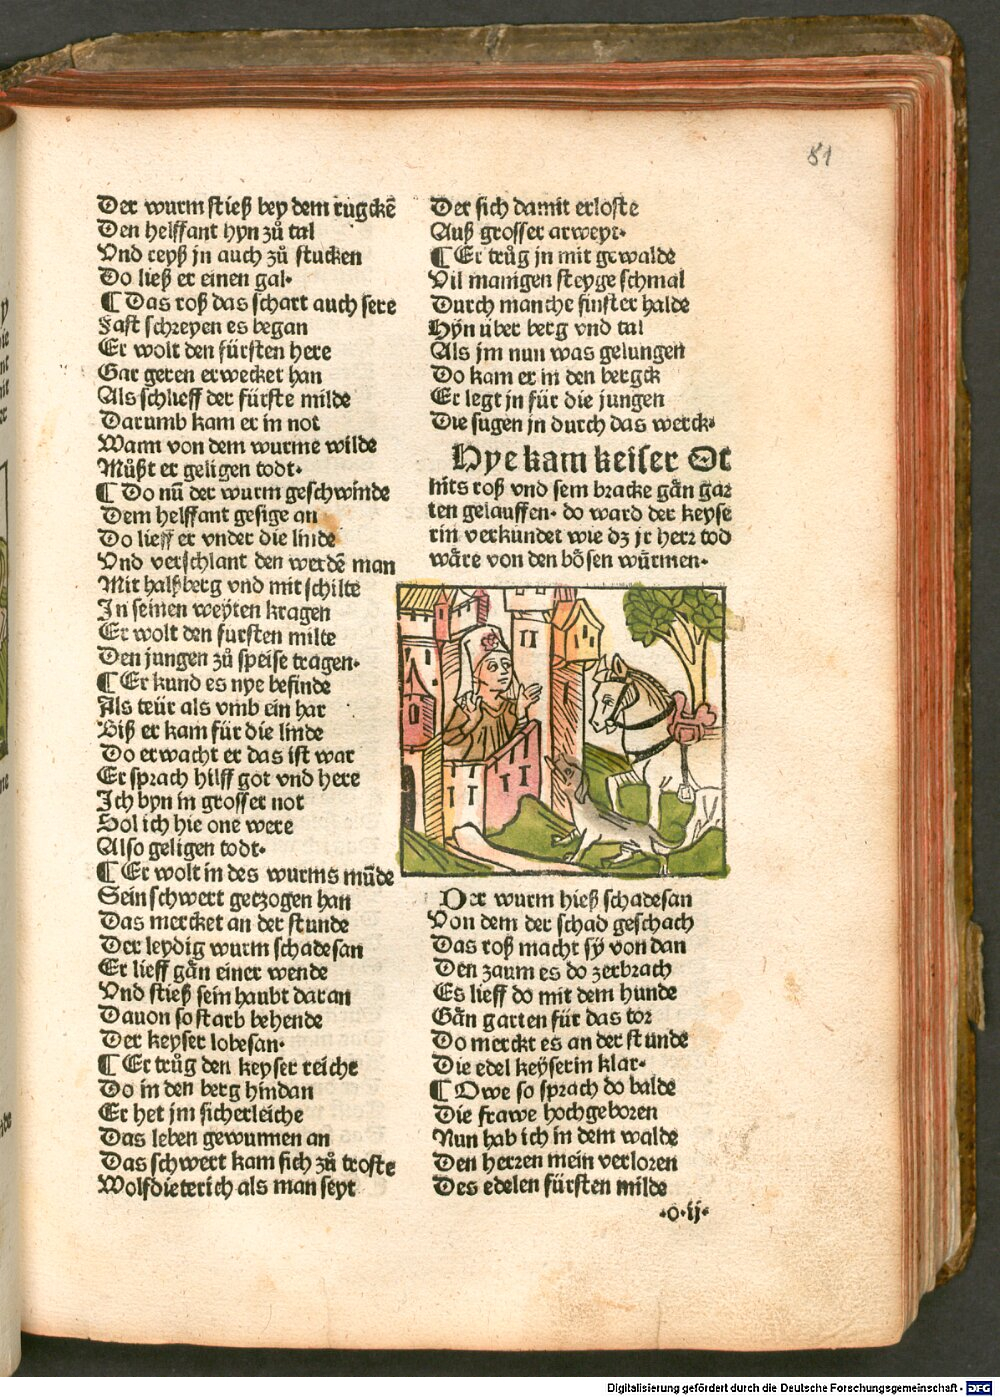 81
Der wurm stieß bey dem rugckē
Den helffant hyn zů tal
Vnd reyß jn auch zů stucken
Do ließ er einen gal·
¶ Das roß das schart auch sere
Fast schreyen es began
Er wolt den fürsten here
Gar geren erwecket han
Als schlieff der fürste milde
Darumb kam er in not
Wann von dem wurme wilde
Můßt er geligen todt·
¶ Do nū der wurm geschwinde
Dem helffant gesige an
Do lieff er vnder die linde
Vnd verschlant den werdē man
Mit halßberg vnd mit schilte
In seinen weyten kragen
Er wolt den fursten milte
Den jungen zů speise tragen·
¶ Er kund es nye befinde
Als teür als vmb ein har
Biß er kam für die linde
Do erwacht er das ist war
Er sprach hilff got vnd here
Ich byn in grosser not
Sol ich hie one were
Also geligen todt·
¶ Er wolt in des wurms mūde
Sein schwert getzogen han
Das mercket an der stunde
Der leydig wurm schadesan
Er lieff gån einer wende
Vnd stieß sein haubt daran
Dauon so starb behende
Der keyser lobesan·
¶ Er trůg den keyser reiche
Do in den berg hindan
Er het jm sicherleiche
Das leben gewunnen an
Das schwert kam sich zů troste
Wolfdieterich als man seyt
Der sich damit erloste
Auß grosser arweyt·
¶ Er trůg jn mit gewalde
Vil manigen steyge schmal
Durch manche finster halde
Hyn über berg vnd tal
Als jm nun was gelungen
Do kam er in den bergck
Er legt jn für die jungen
Die sugen jn durch das werck·
Hye kam keiser Ot
nits roß vnd sein bracke gån gar
ten gelauffen· do ward der keyse
rin verkundet wie dz jr herr tod
wåre von den bösen würmen·
Der wurm hieß schadesan
Von dem der schad geschach
Das roß macht sy von dan
Den zaum es do zerbrach
Es lieff do mit dem hunde
Gån garten für das tor
Do merckt es an der stunde
Die edel keyserin klar·
¶ Owe so sprach do balde
Die frawe hochgeboren
Nun hab ich in dem walde
Den herren mein verloren
Des edelen fürsten milde
·o·ij·
Digitalisierung gefördert durch die Deutsche Forschungsgemeinschaft - DFG